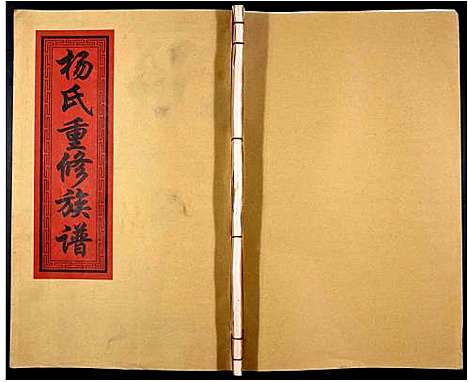 杨氏重修族谱